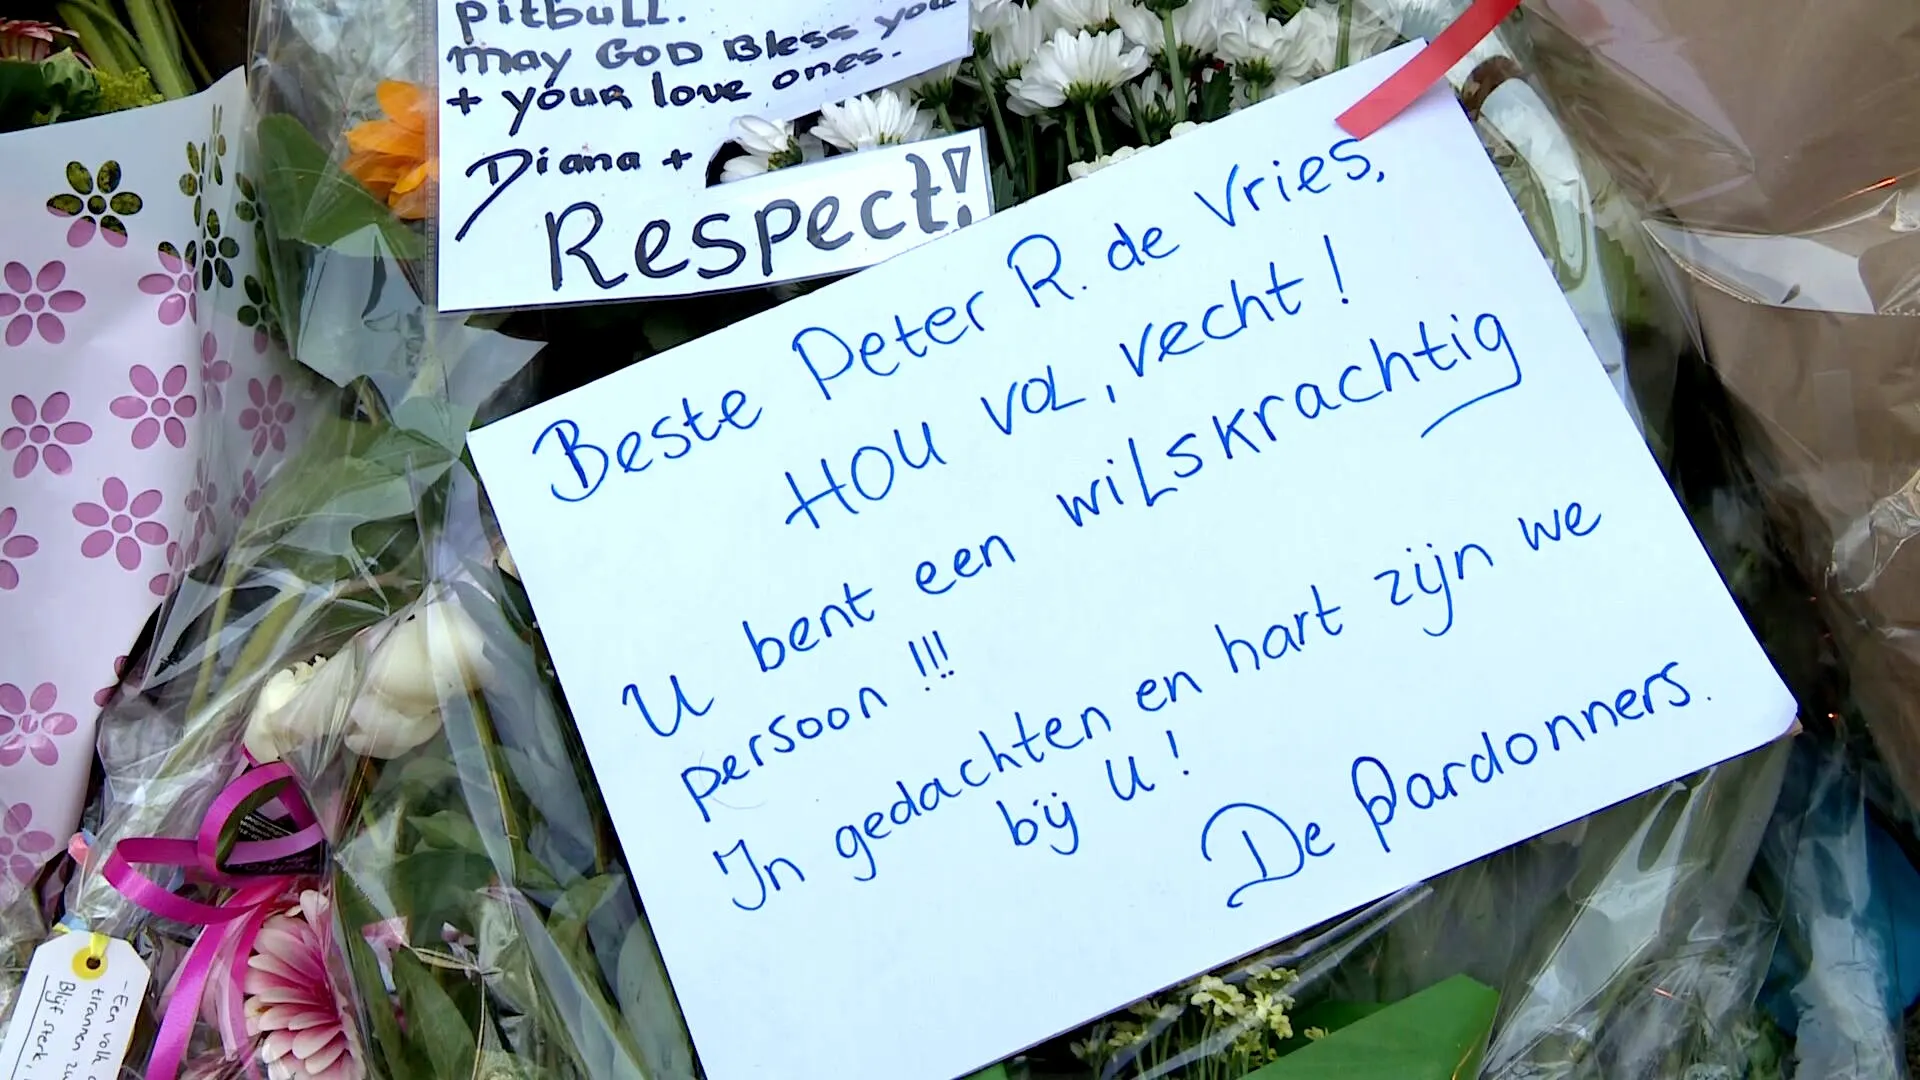 pitbull.
may GOD Bless you
+ your love ones.
Diana +
Respect!
Beste Peter R. de Vries,
HOU VOL, vecht!
U bent een wilskrachtig
persoon !!!
In gedachten en hart zijn we
bij U!
De Pardonners.
- Een volk
tirannen
Blijf sterk,